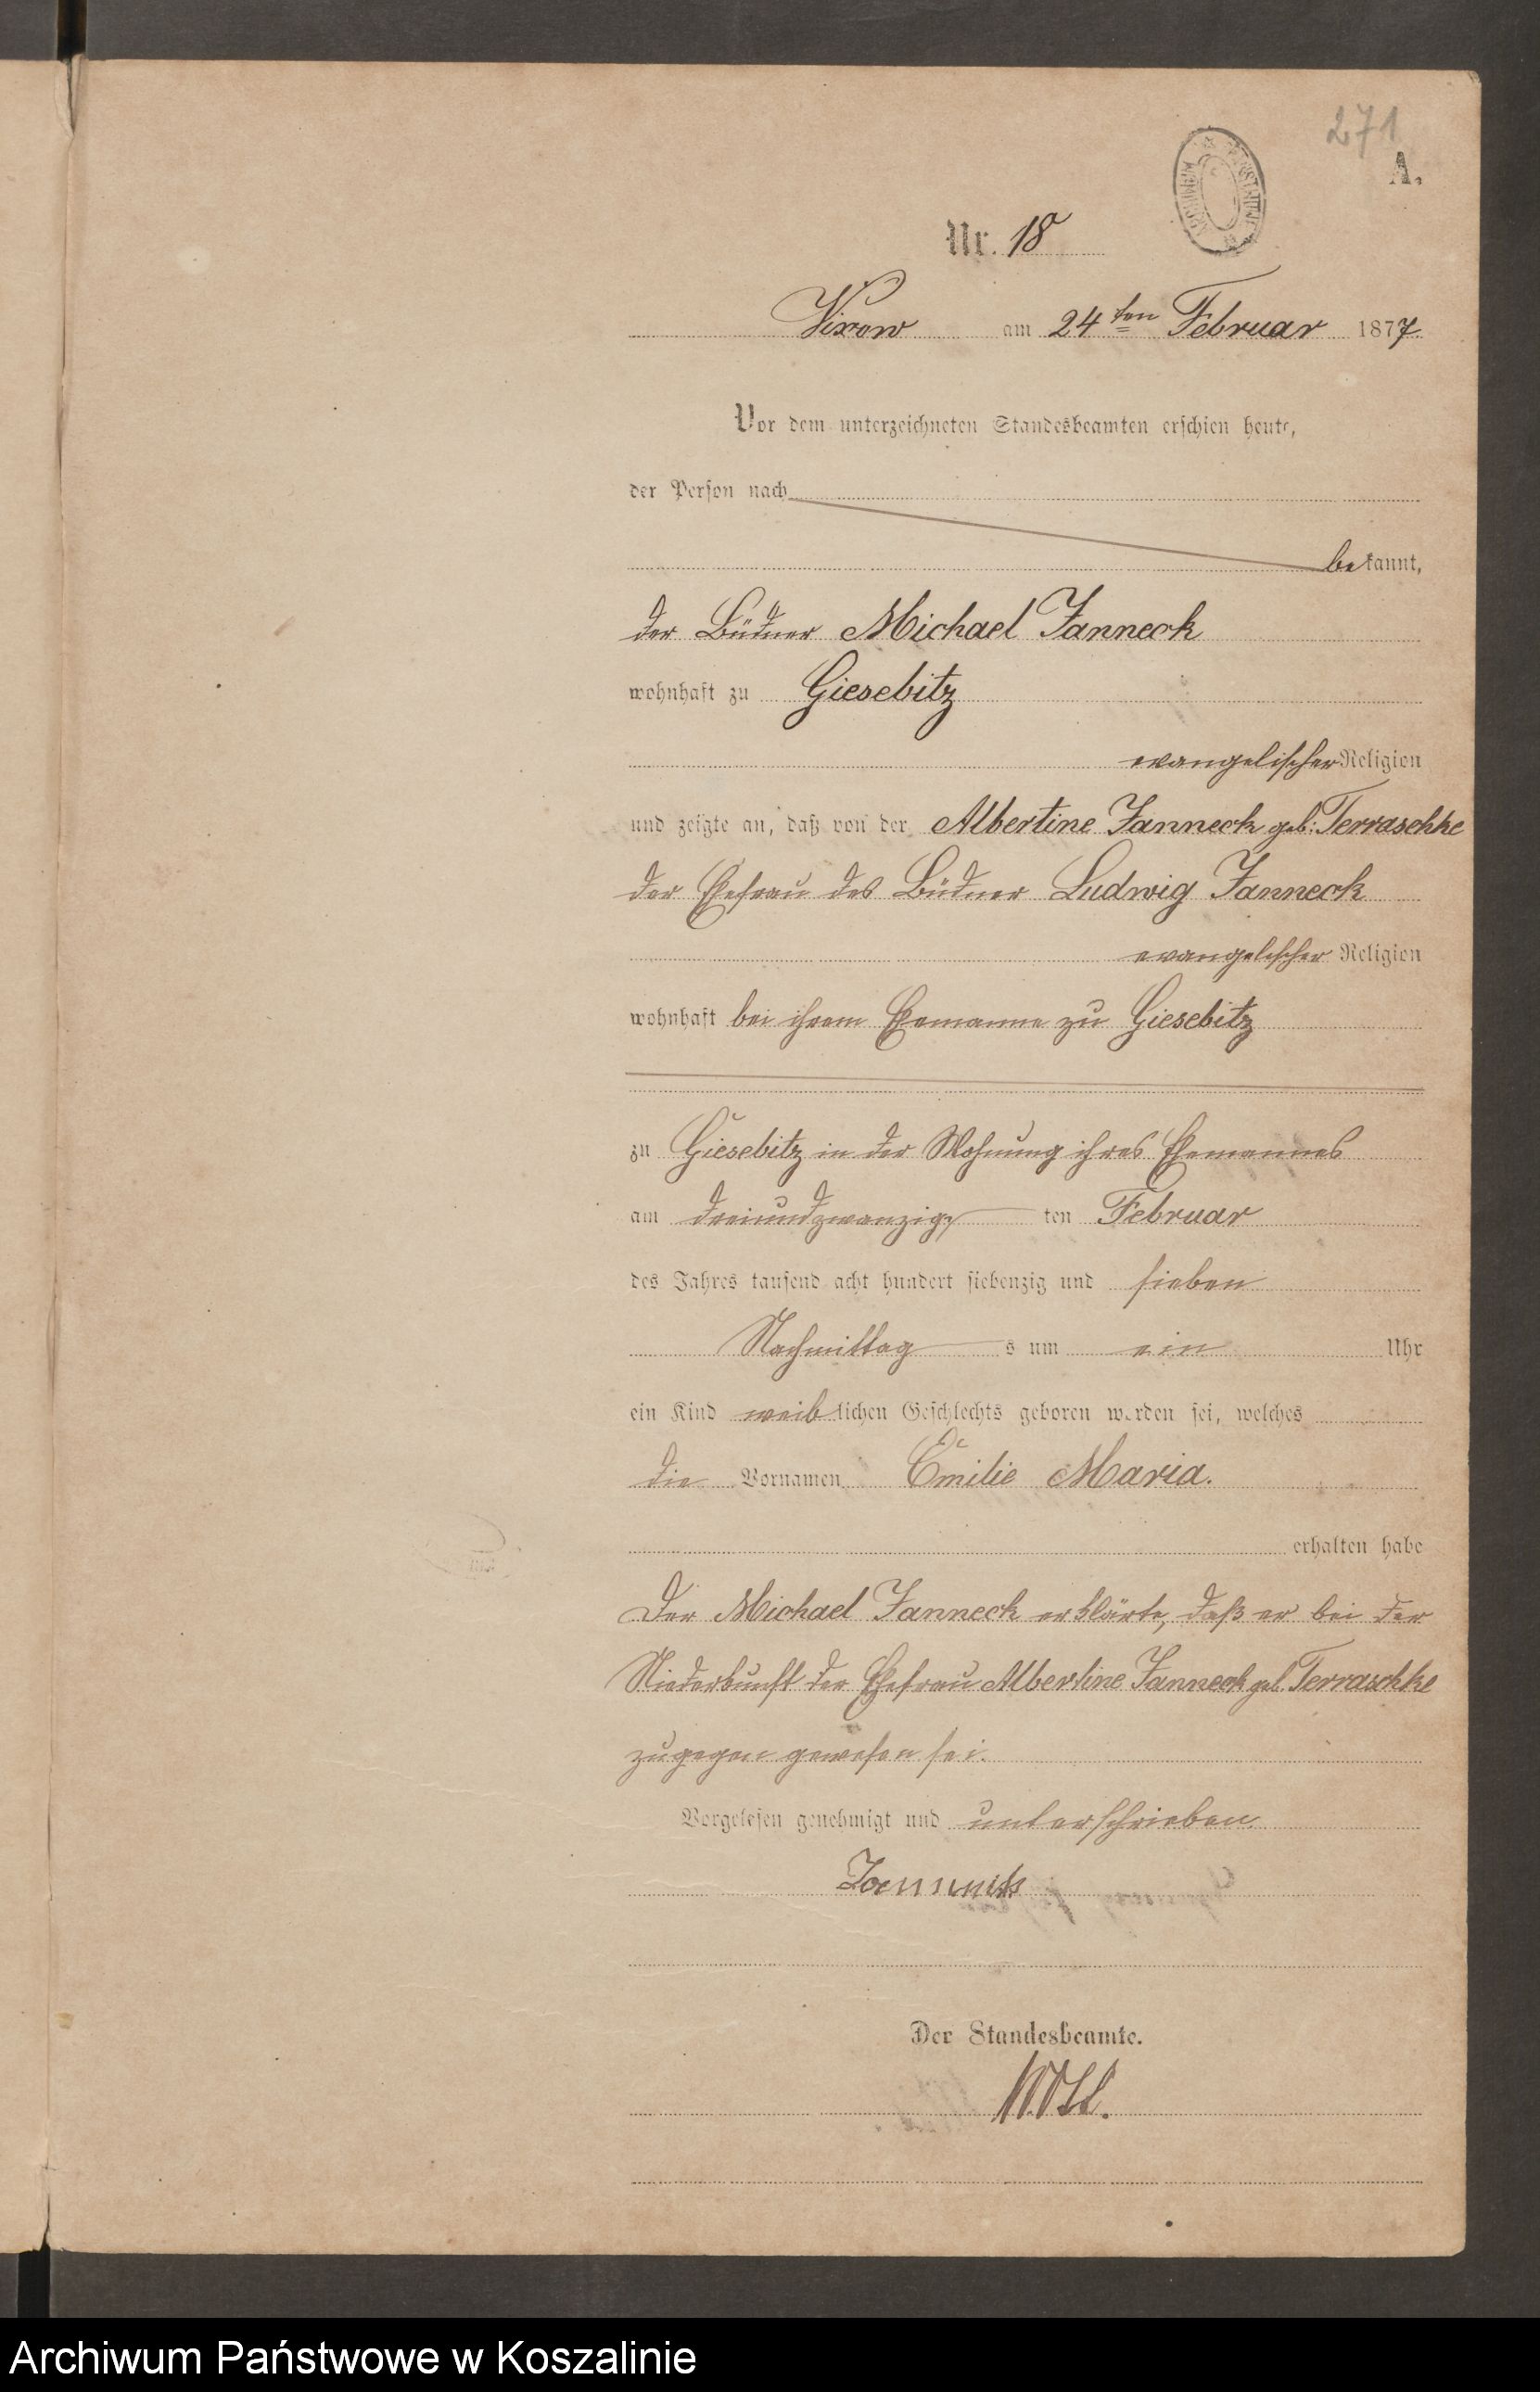 271
A.
Nr. 18
Vixow am 24ten Februar 1877.
Vor dem unterzeichneten Standesbeamten erschien heute,
der Person nach
bekannt,
der Büdner Michael Janneck
wohnhaft zu Giesebitz
evangelischer Religion
und zeigte an, daß von der Albertine Janneck geb: Terraschke
der Ehefrau des Büdner Ludwig Janneck
evangelischer Religion
wohnhaft bei ihrem Ehemanne zu Giesebitz
zu Giesebitz in der Wohnung ihres Ehemannes
am dreiundzwanzigsten Februar
des Jahres tausend acht hundert siebenzig und sieben
Nachmittags um ein Uhr
ein Kind weiblichen Geschlechts geboren worden sei, welches
die Vornamen Emilie Maria.
erhalten habe
Der Michael Janneck erklärte, daß er bei der
Niederkunft der Ehefrau Albertine Janneck geb. Terraschke
zugegen gewesen sei.
Vorgelesen genehmigt und unterschrieben.
Der Standesbeamte.
Archiwum Państwowe w Koszalinie